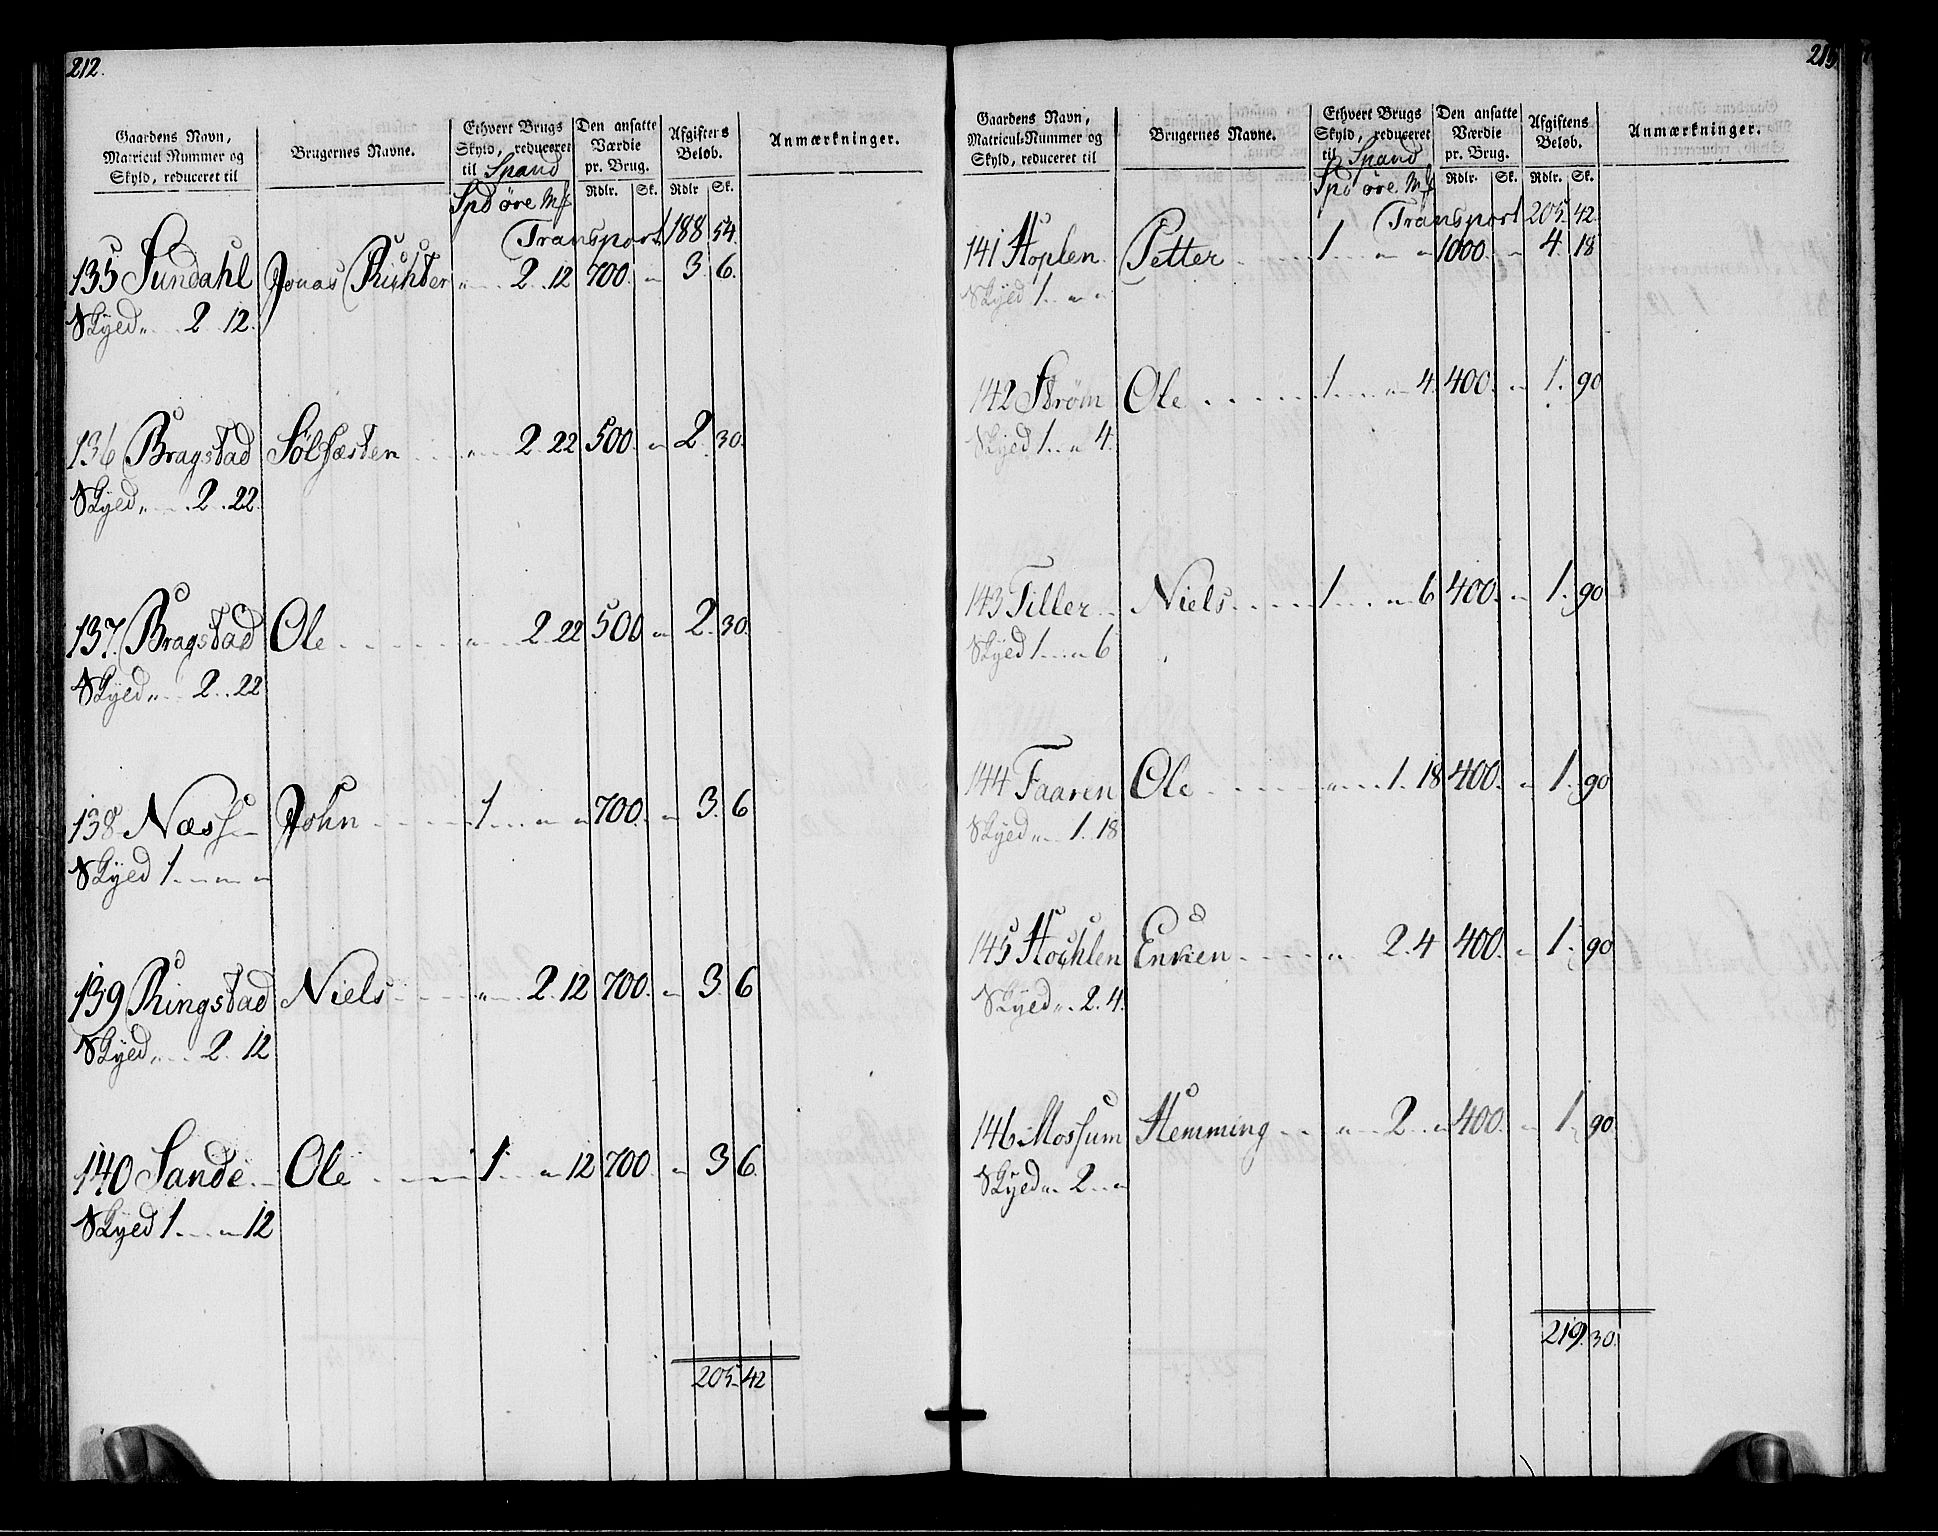 212.
Gaardens Navn, Matricul Nummer og Skyld, reduceret til | Brugernes Navne. | Ethvert Brugs Skyld, reduceret til Spand | Den ansatte Værdie pr. Brug. | Afgifters Beløb. | Anmærkninger.
Spd øre Mf | Rdlr. Sk. | Rdlr Sk.
Transport 188 54.
135 Sundahl Jonas Richter „ 2 12 700. „ 3 6.
Skyed „ 2 12.
136 Bragstad Sølfæsten „ 2 22 500. „ 2. 30.
Skyed „ 2 22.
137. Bragstad Ole „ 2 22 500 „ 2. 30.
Skyed „ 2 22
138 Næss John 1 „ „ 700. „ 3. 6
Skyed 1 „ „
139 Ringstad Niels „ 2 12 700. „ 3. 6
Skyed „ 2 12
140 Sande Ole 1 „ 12 700. „ 3 6.
Skyed 1 „ 12
205. 42
213.
Gaardens Navn, Matricul-Nummer og Skyld, reduceret til | Brugernes Navne. | Ethvert Brugs Skyld, reduceret til Spand | Den ansatte Værdie pr. Brug. | Afgiftens Beløb. | Anmærkninger.
Spd øre Mf | Rdlr. Sk. | Rdlr. Sk.
Transport 205. 42.
141 Hoplen Petter 1 „ „ 1000. „ 4. 18
Skyed 1 „ „
142 Strøm Ole 1 „ 4. 400. „ 1. 90
Skyed 1 „ 4.
143 Tiller Niels 1 „ 6 400. „ 1. 90
Skyed 1 „ 6
144 Faaren Ole „ 1. 18 400. „ 1. 90
Skyed „ 1. 18
145 Enken „ 2. 4 400. „ 1. 90
Skyed „ 2. 4.
146 Mossum Hemming „ 2 „ 400. „ 1. 90.
Skyed „ 2 „
219. 30.